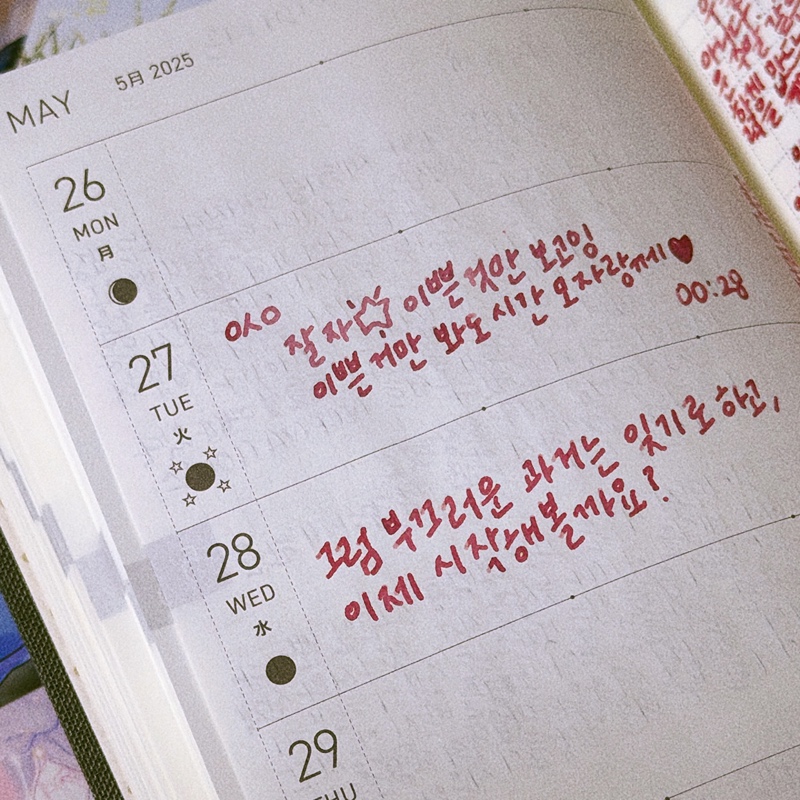 MAY 5月 2025
26
MON
月
27
TUE
火
이쁜것만 보고잉
이쁜 거만 봐도 시간 모자랑께♥
00:28
28
WED
水
그럼 부끄러운 과거는 잊기로 하고,
이제 시작해볼까요?
29
THU